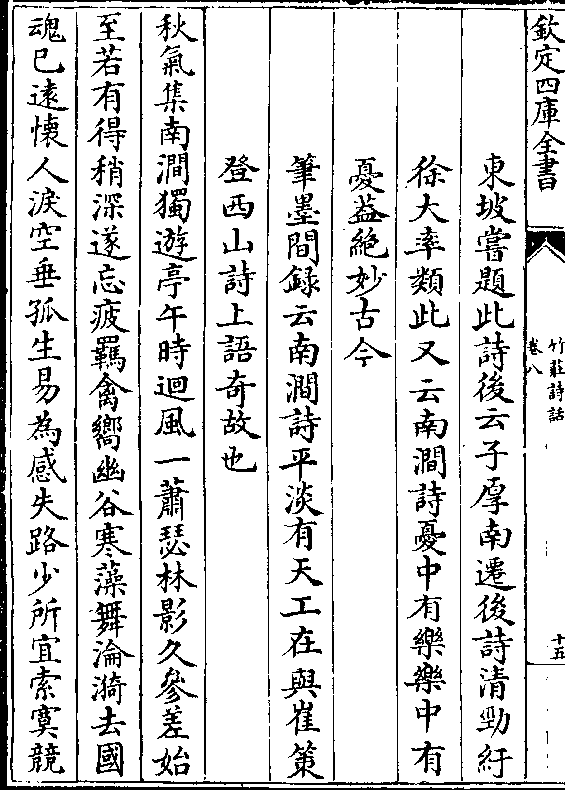 欽定四庫全書
竹莊詩話
卷八
十五
東坡嘗題此詩後云子厚南遷後詩清勁紆
徐大率類此又云南澗詩憂中有樂樂中有
憂葢絶妙古今
筆墨間録云南澗詩平淡有天工在與崔策
登西山詩上語奇故也
秋氣集南澗獨遊亭午時迴風一蕭瑟林影久參差始
至若有得稍深遂忘疲羈禽嚮幽谷寒藻舞淪漪去國
魂已遠懷人淚空垂孤生易為感失路少所宜索寞競